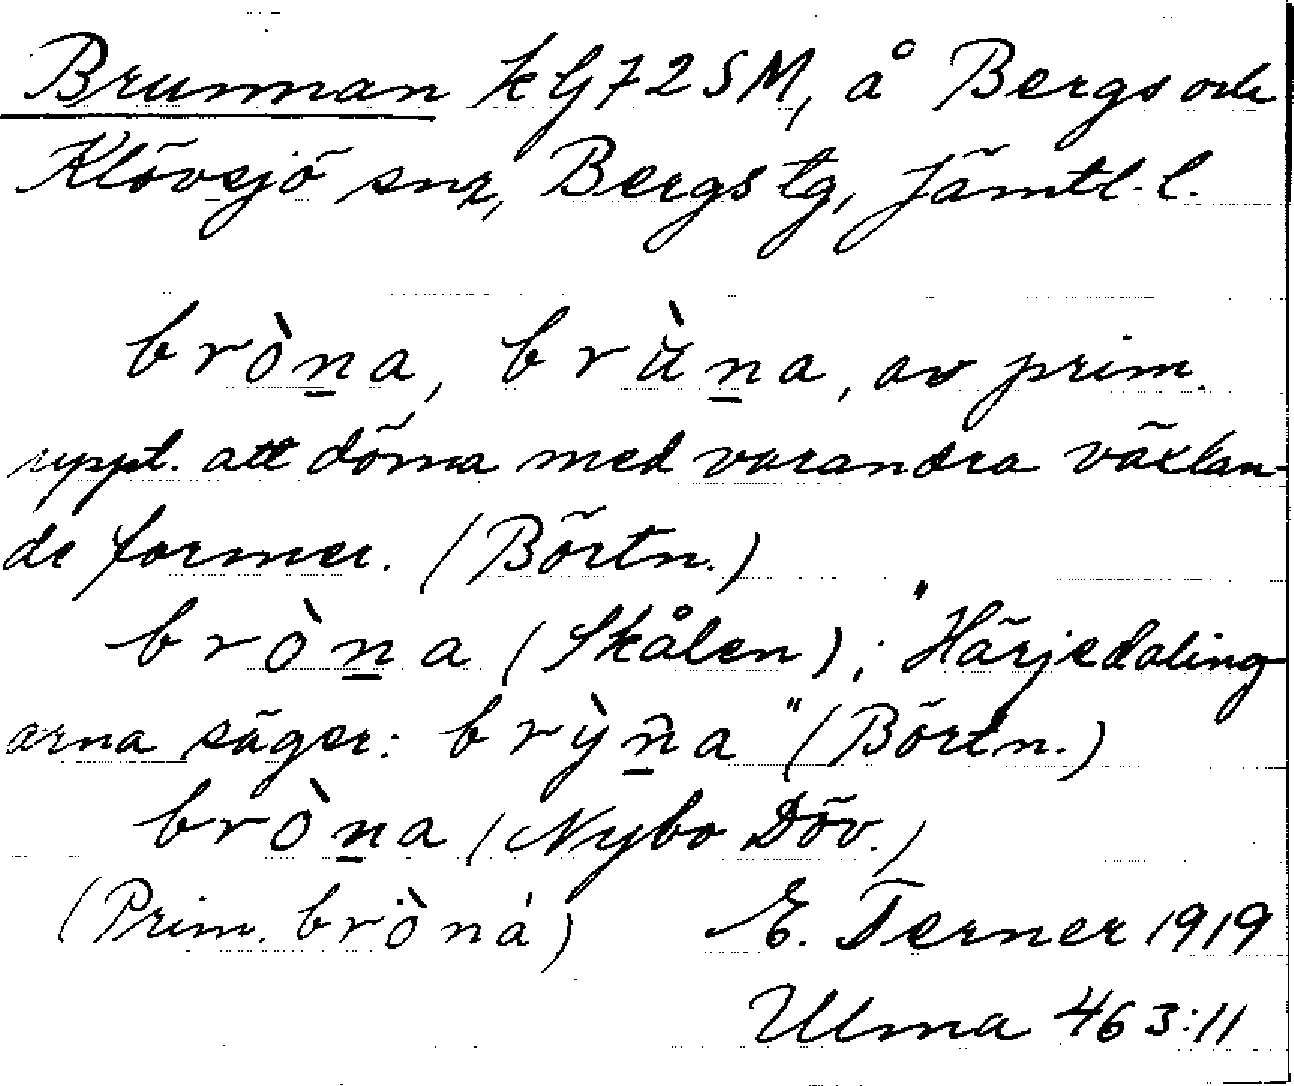 Brunnan kG72SM, å Bergs och
Klövsjö snr, Bergs tg, Jämtl. l.
bròn̲a, brùn̲a, av prim.
uppt. att döma med varandra växlan-
de former. (Börtn.)
bròn̲a (Skålen); "Härjedaling
arna säger: brỳn̲a" (Börtn.)
bròn̲a (Nybo Döv.)
(Prim. bròná) E. Terner 1919
Ulma 463:11